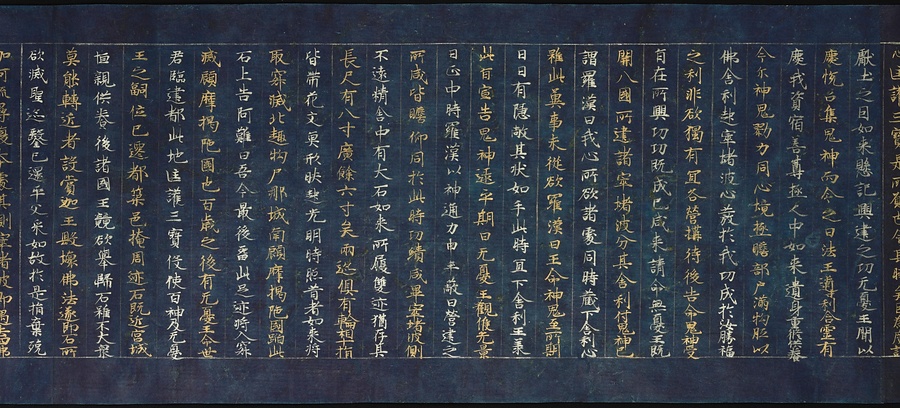 匡護三寶是所願也今其時矣
猒土之曰如來懸記興建之功无憂王聞以
慶悅召集鬼神而令之曰法王遒利含霊有
慶我資宿善尊極人中如來遺身重修供養
今尓神鬼勠力同心境極贍部戶滿拘胝以
佛舍利起窣堵波心發於我功成於汝勝福
之利非欲獨有冝各營搆待後告命鬼神受
旨在所興功功既成已咸来請命無憂王既
開八國所建諸窣堵波分其舍利付鬼神已
謂羅漢曰我心所欲諸處同時藏下舍利心
雖此冀事未從欲羅漢曰王命神鬼至所期
日日有隱蔽其狀如手此時冝下舍利王承
此旨宣告鬼神逮乎期日无憂王觀候光景
日正中時羅漢以神通力申手蔽日營建之
所咸皆瞻仰同於此時功績咸畢窣堵波側
不遠精舍中有大石如来所履雙迹猶存其
長尺有八寸廣餘六寸矣兩迹俱有輪相指
皆帶花文莫形状起光明時照昔者如来将
取寂滅北趣拘尸那城南顧摩揭陁國蹈此
石上告阿難曰吾今最後留此足迹将入寂
滅顧摩揭陁國也百歲之後有无憂王命世
君臨建都此地匡護三寶伇使百神及无憂
王之嗣位已遷都築邑掩周迹石既近宮城
恒親供養後諸國王競欲舉歸石雖不大衆
莫能轉近者設賞迦王毀壞佛法遂即石所
欲滅聖迹鑿已還平文采如故於是捐棄殑
伽河流尋復本處其側窣堵波即過去四佛